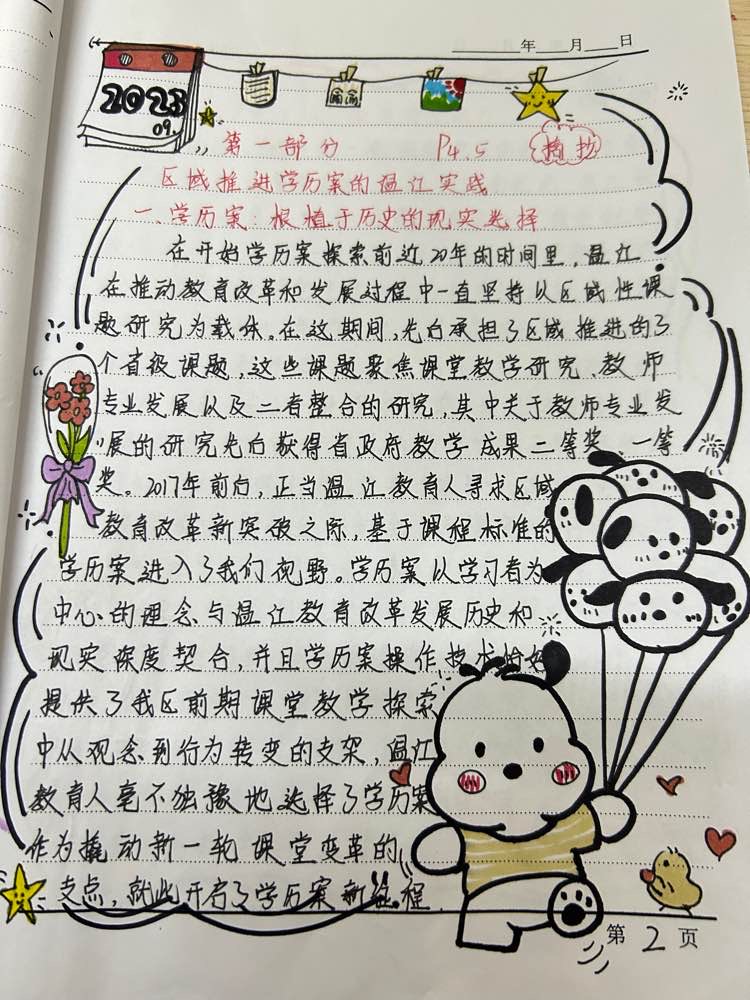 年 月 日
2023
09.
第一部分 P4.5 摘抄
区域推进学历案的温江实践
一、学历案：根植于历史的现实选择
在开始学历案探索前近20年的时间里，温江
在推动教育改革和发展过程中一直坚持以区域性课
题研究为载体。在这期间，先后承担了区域推进的了
个省级课题，这些课题聚焦课堂教学研究、教师
专业发展以及二者整合的研究，其中关于教师专业发
展的研究先后获得省政府教学成果二等奖、一等
奖。2017年前后，正当温江教育人寻求区域
教育改革新突破之际，基于课程标准的
学历案进入了我们视野。学历案以学习者为
中心的理念与温江教育改革发展历史和
现实深度契合，并且学历案操作技术恰好
提供了我区前期课堂教学探索
中从观念到行为转变的支架，温江
教育人毫不独豫地选择了学历案
作为撬动新一轮课堂变革的
支点，就此开启了学历案新征程
第 2 页